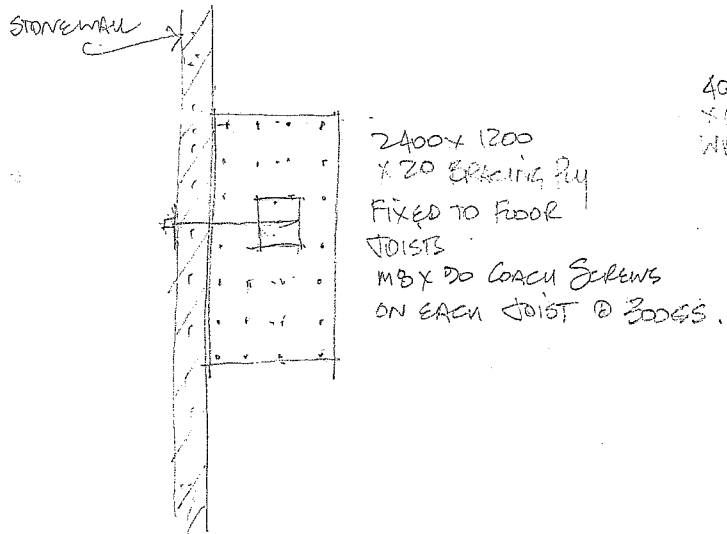 STONEWALL
2400 x 1200
x 20 BRACING PLY
FIXED TO FLOOR
JOISTS
M8 x 90 COACH SCREWS
ON EACH JOIST @ 300